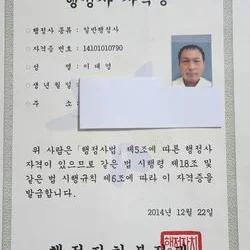 행정사 자격증
◦행정사 종류 : 일반행정사
◦자격증 번호 : 14101010790
◦성 명 : 이대영
◦생 년 월 일
◦주 소 :
위 사람은 「행정사법」 제5조에 따른 행정사
자격이 있으므로 같은 법 시행령 제18조 및
같은 법 시행규칙 제6조에 따라 이 자격증을
발급합니다.
2014년 12월 22일
행정자치부장관
행정자치